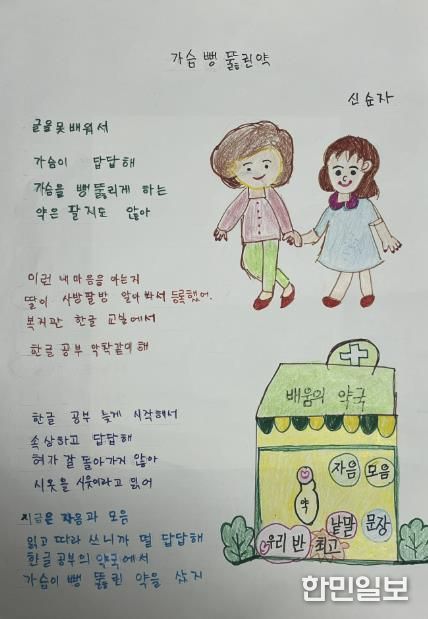 가슴 뻥 뚫린약
신순자
글을 못 배워서
가슴이 답답해
가슴을 뻥 뚫리게 하는
약은 팔지도 않아
이런 내 마음을 아는지
딸이 사방팔방 알아봐서 등록했어.
복지관 한글 교실에서
한글 공부 악착같이 해
한글 공부 늦게 시작해서
속상하고 답답해
혀가 잘 돌아가지 않아
시옷을 시웃이라고 읽어
지금은 자음과 모음
읽고 따라 쓰니까 덜 답답해
한글 공부의 약국에서
가슴이 뻥 뚫린 약을 샀지
배움의 약국
자음 모음
약
낱말 문장
우리 반 최고
한민일보